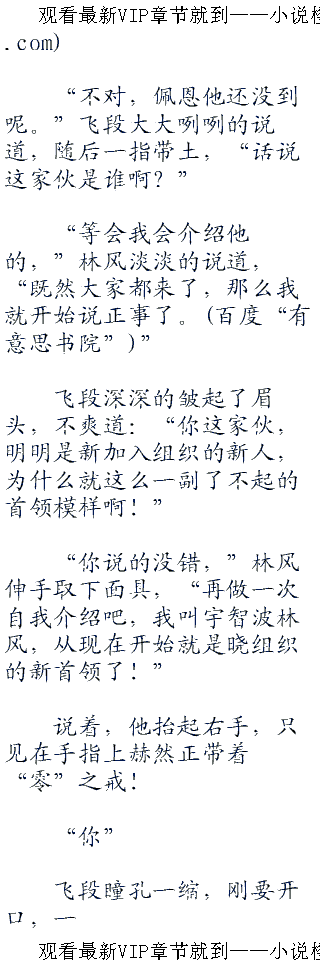 观看最新VIP章节就到——小说
.com)
“不对，佩恩他还没到
呢。”飞段大大咧咧的说
道，随后一指带土，“话说
这家伙是谁啊？”
“等会我会介绍他
的，”林风淡淡的说道，
“既然大家都来了，那么我
就开始说正事了。(百度“有
意思书院”)”
飞段深深的皱起了眉
头，不爽道：“你这家伙，
明明是新加入组织的新人，
为什么就这么一副了不起的
首领模样啊！”
“你说的没错，”林风
伸手取下面具，“再做一次
自我介绍吧，我叫宇智波林
风，从现在开始就是晓组织
的新首领了！”
说着，他抬起右手，只
见在手指上赫然正带着
“零”之戒！
“你”
飞段瞳孔一缩，刚要开
口，一
观看最新VIP章节就到——小说